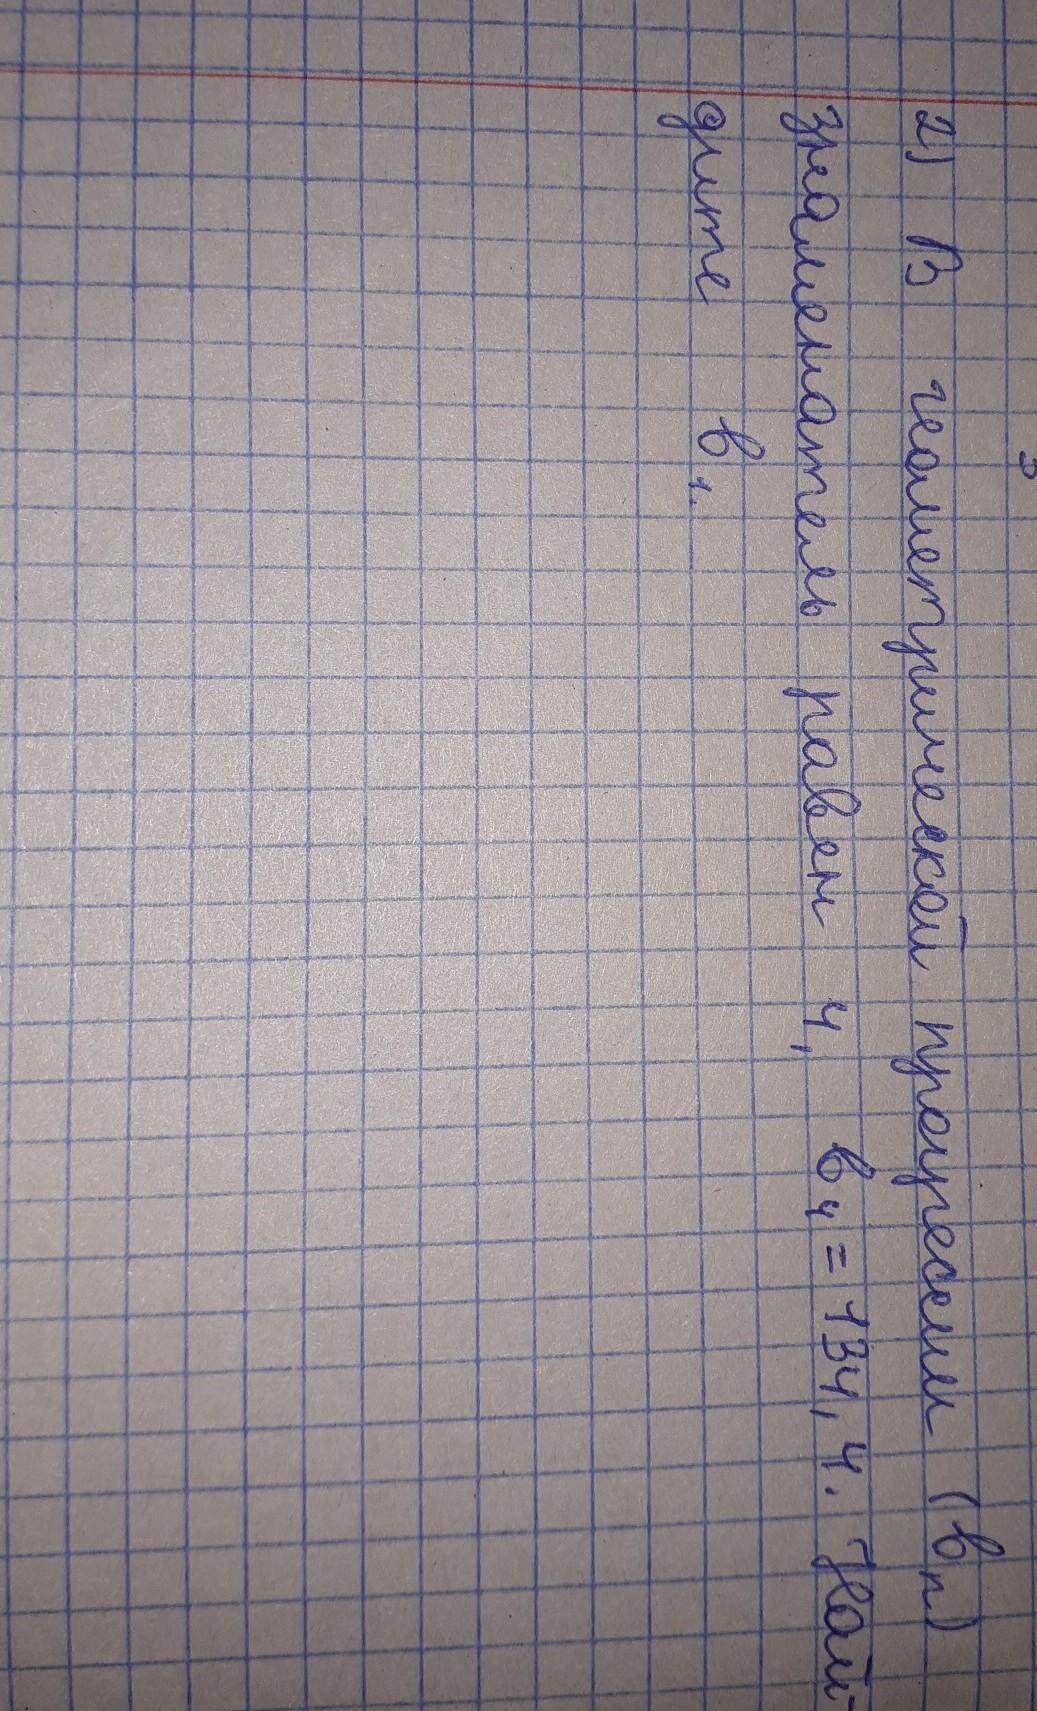 2) В геометрической прогрессии (bn)
знаменатель равен 4, b4 = 134,4. Най-
дите b1.